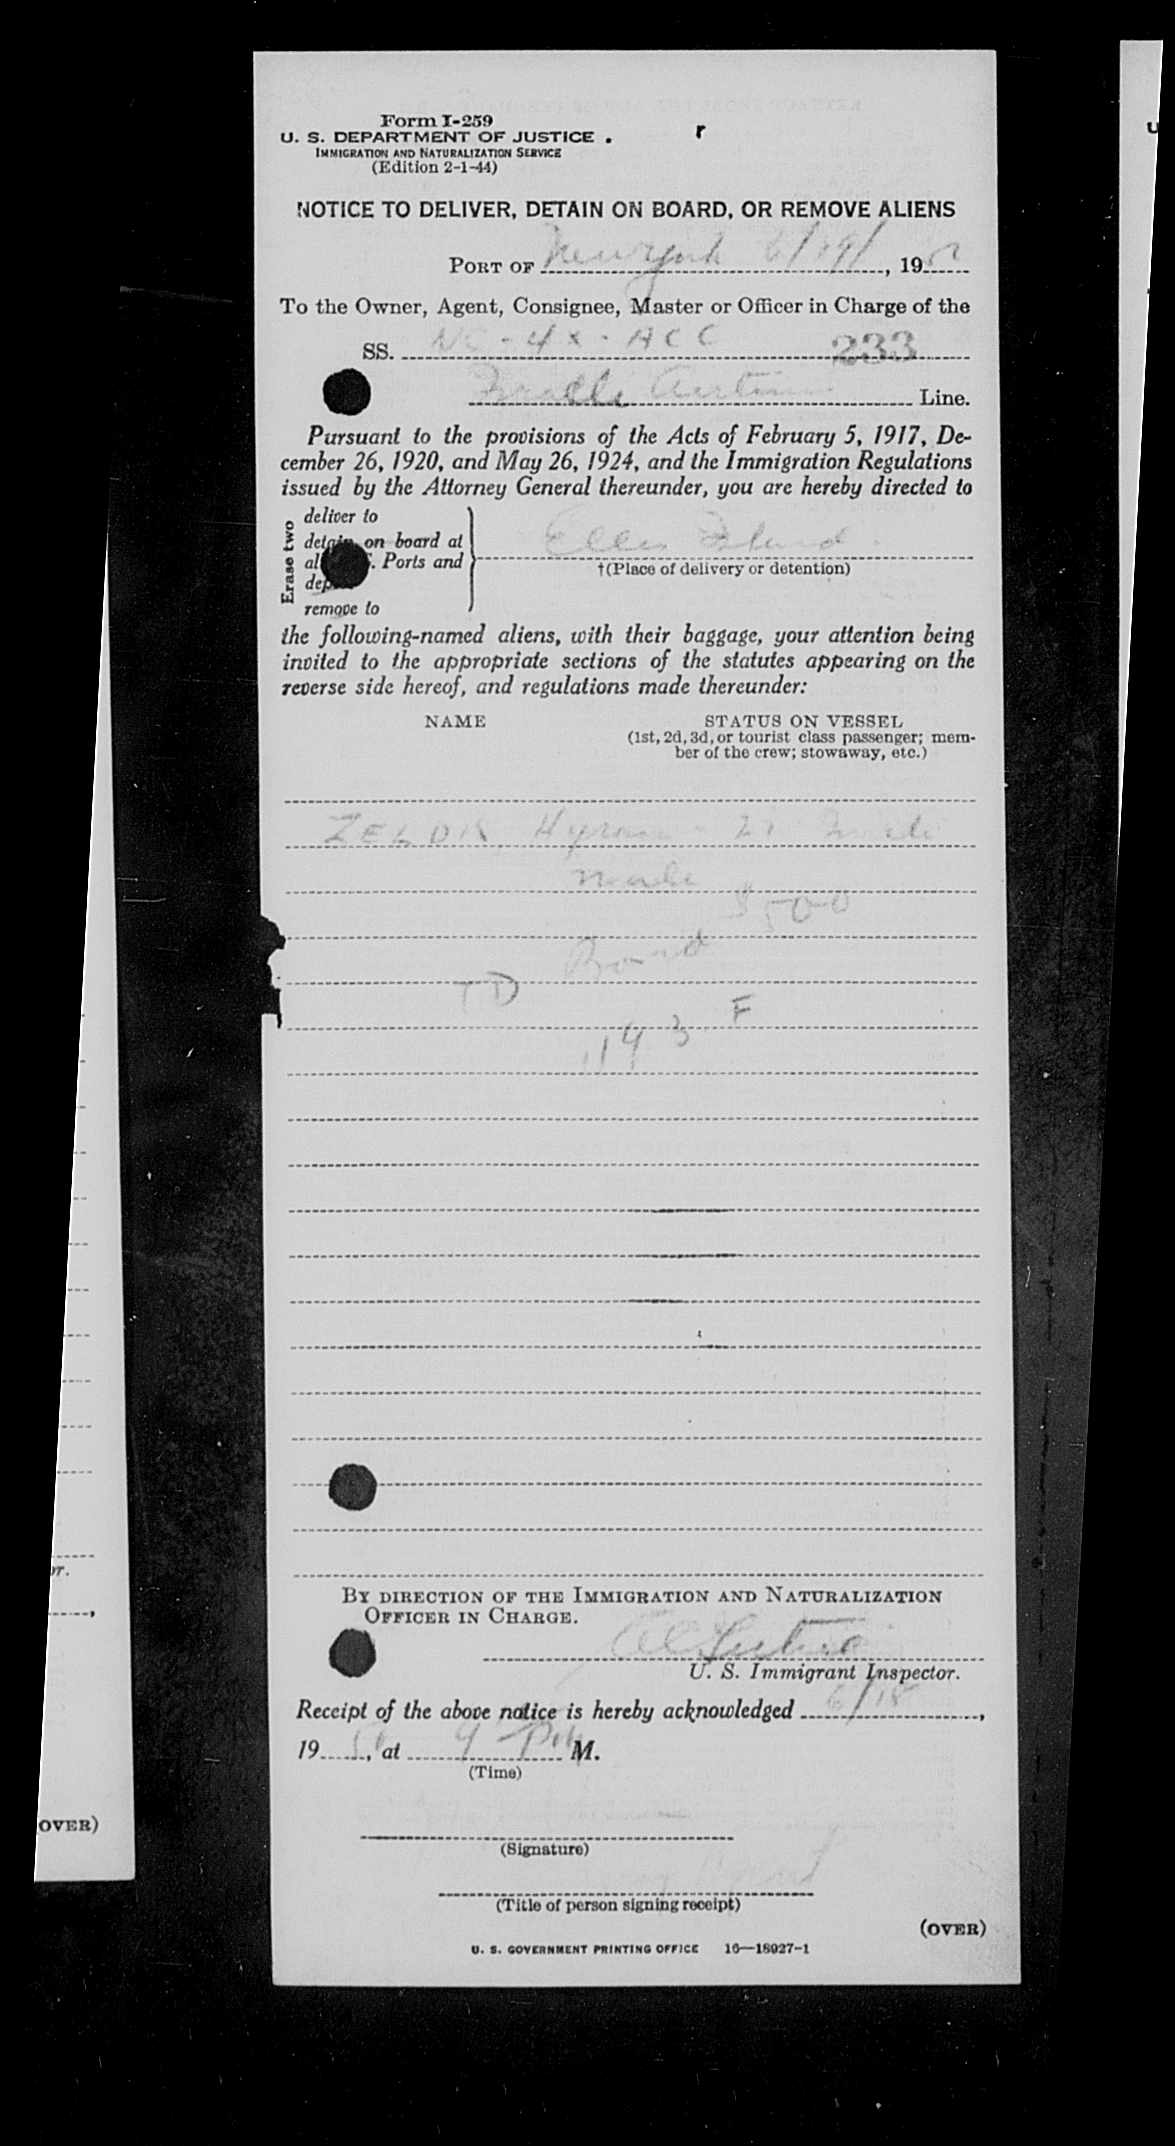 Form I-259
U. S. DEPARTMENT OF JUSTICE .
IMMIGRATION AND NATURALIZATION SERVICE
(Edition 2-1-44)
r
NOTICE TO DELIVER, DETAIN ON BOARD, OR REMOVE ALIENS
PORT OF New York 6/19/, 19
To the Owner, Agent, Consignee, Master or Officer in Charge of the
SS. NC - 4X - ACC 233
Line.
Pursuant to the provisions of the Acts of February 5, 1917, De-
cember 26, 1920, and May 26, 1924, and the Immigration Regulations
issued by the Attorney General thereunder, you are hereby directed to
Erase two
deliver to
detain on board at
Ports and
remove to
Ellis Island
†(Place of delivery or detention)
the following-named aliens, with their baggage, your attention being
invited to the appropriate sections of the statutes appearing on the
reverse side hereof, and regulations made thereunder:
NAME
STATUS ON VESSEL
(1st, 2d, 3d, or tourist class passenger; mem-
ber of the crew; stowaway, etc.)
ZELDK
male
$500
Bond
TD
1193 F
BY DIRECTION OF THE IMMIGRATION AND NATURALIZATION
OFFICER IN CHARGE.
U. S. Immigrant Inspector.
Receipt of the above notice is hereby acknowledged 6/18,
19 50, at 9 M.
(Time)
(Signature)
(Title of person signing receipt)
(OVER)
U. S. GOVERNMENT PRINTING OFFICE 16—18927-1
or.
OVER)
U